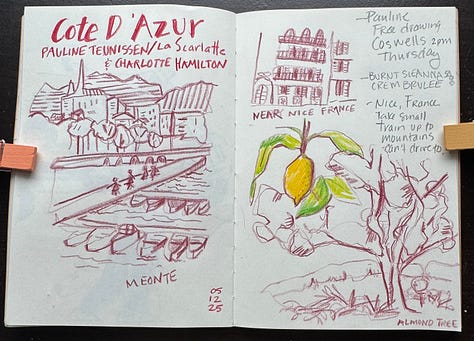 COTE D'AZUR
PAULINE TEUNISSEN/La Scarlatte
& CHARLOTTE HAMILTON
MEONTE
05
12
25
NEAR NICE FRANCE
-Pauline
Free drawing
Coswells 2pm
Thursday
-BURNT SIEANNA &
CREM BRULEE
-Nice, France
Take small
Train up to
mountains
-Can't drive to
ALMOND TREE